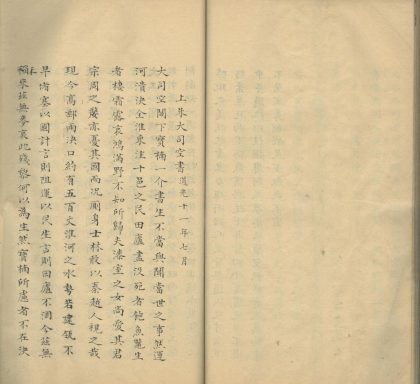 上朱大司空書道光十一年七月
大司空閣下寶楠一介書生不當與聞當世之事然運
河潰決全淮東注十邑之民田廬盡沒死者飽魚鼈生
者棲霜露哀鴻滿野不知所歸夫漆室之女尚愛其君
宗周之嫠亦憂其國而況厠身士林敢以秦越人視之哉
現今高郵兩決口約有五百丈淮河之水勢若建瓴不
早堵塞以國計言則阻運以民生言則田廬不涸今茲無
稻來茲無麥哀此殘黎何以為生然寶楠所慮者不在決